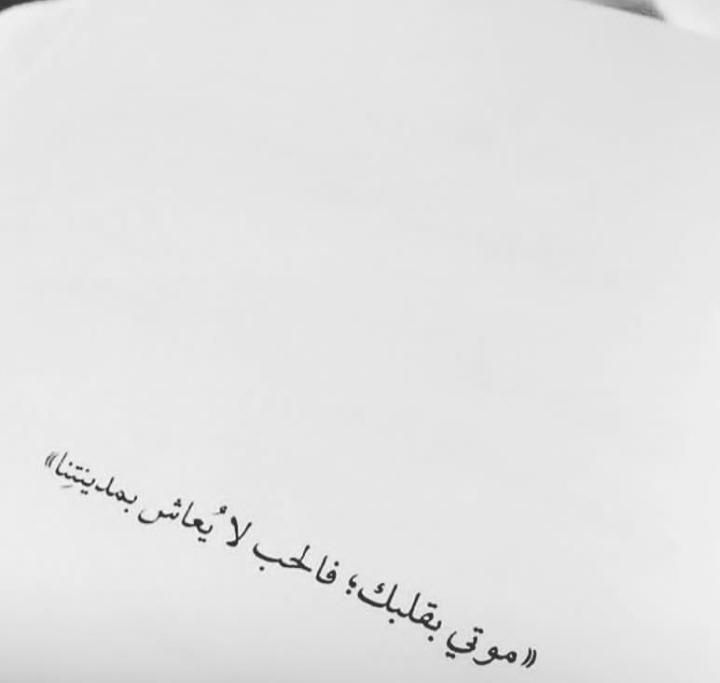 «موتي بقلبك؛ فالحب لا يُعاش بمدينتِنا»